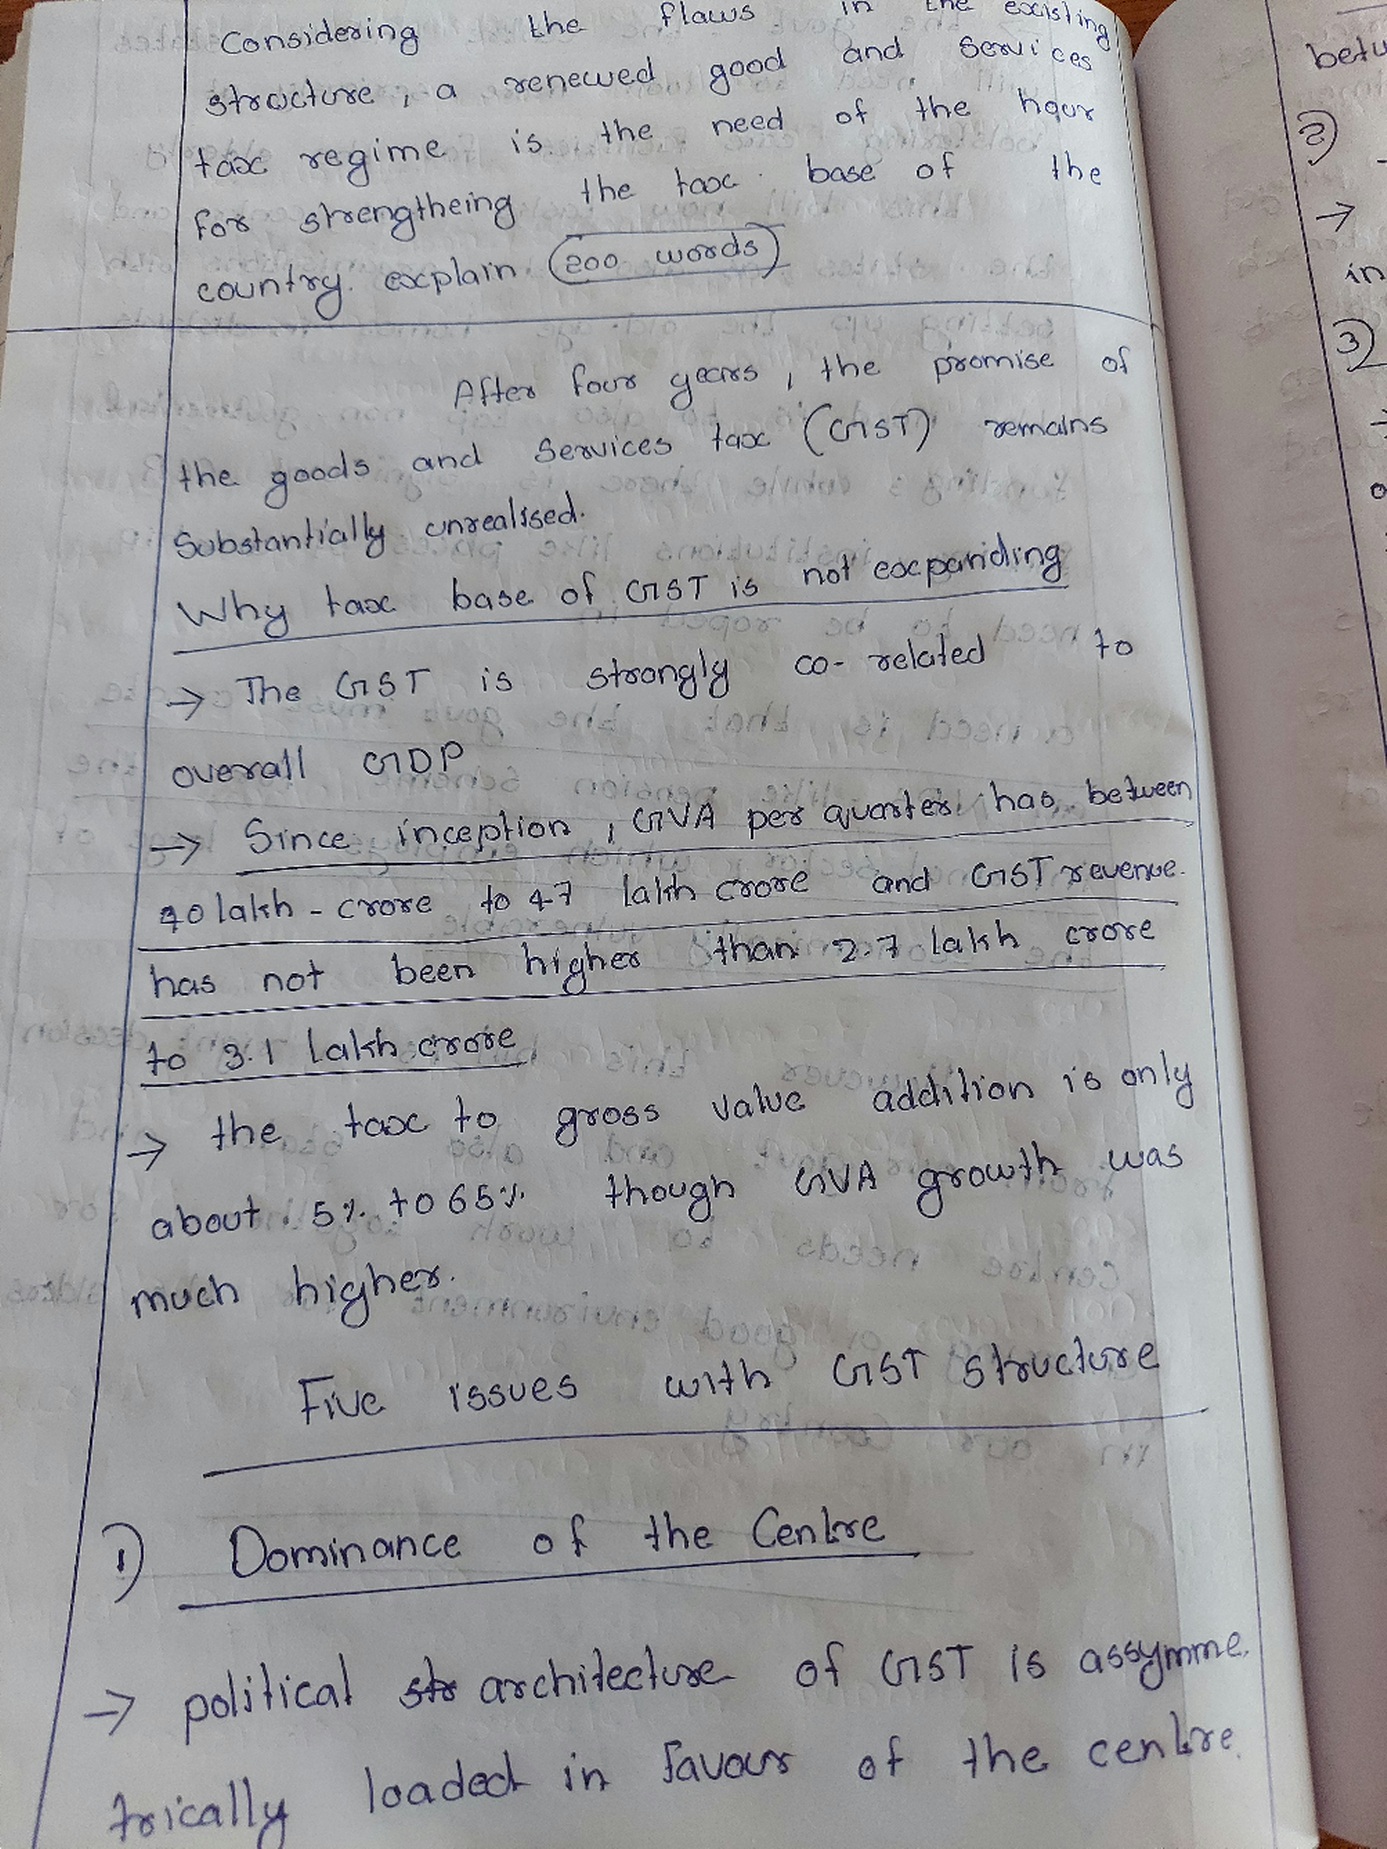 Considering the flaws in the existing
structure, a renewed good and services
tax regime is the need of the hour
for strengtheing the tax base of the
country. explain (200 words)
After four years, the promise of
the goods and Services tax (GST) remains
Substantially unrealised.
Why tax base of GST is not expanding
→ The GST is strongly co-related to
overall GDP
→ Since inception, GVA per quarter has between
40 lakh-crore to 47 lakh crore and GST revenue
has not been higher than 2.7 lakh crore
to 3.1 lakh crore
→ the tax to gross value addition is only
about 5% to 65% though GVA growth was
much higher.
Five issues with GST structure
1) Dominance of the Centre
→ political architecture of GST is assymme
trically loaded in favour of the centre.
2)
→
in
3)